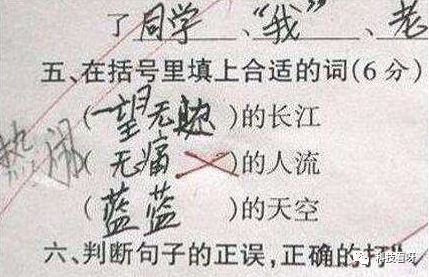 了同学、“我”、老
五、在括号里填上合适的词(6分)
(一望无 )的长江
热闹
(无痛 )的人流
(蓝蓝)的天空
六、判断句子的正误,正确的打"✓